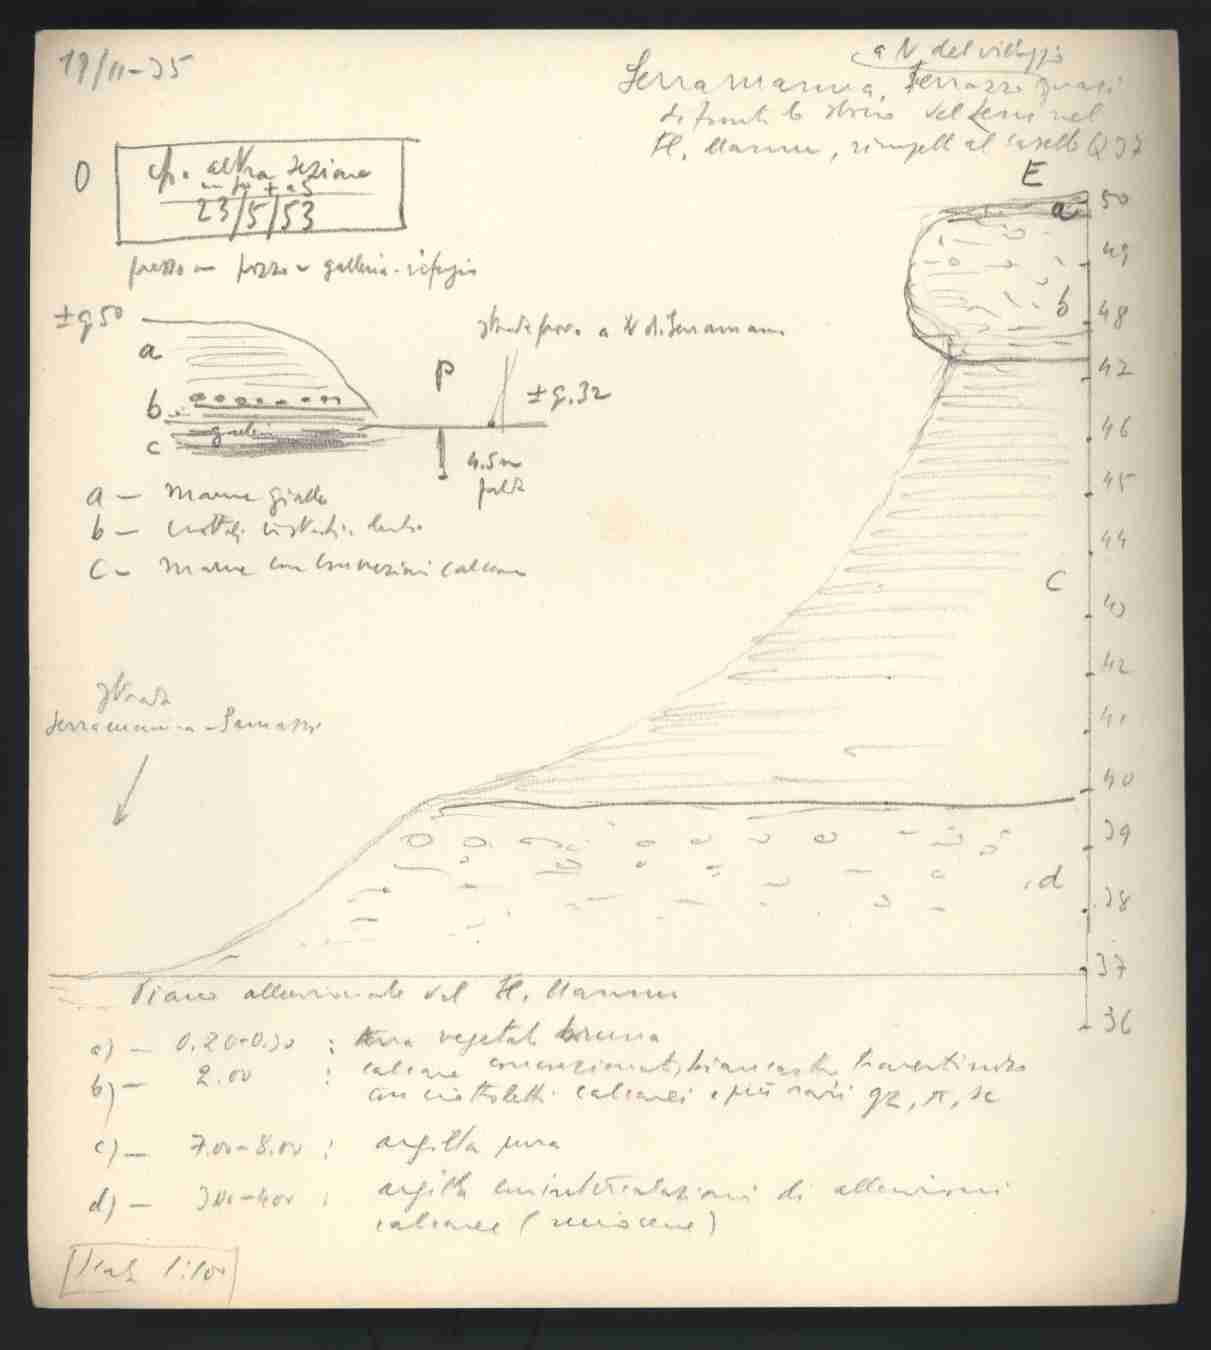 19/11-35
a N del villaggio
Serramanna, Terrazzi quasi
di fronte lo sbocco del Leni nel
Fl. Mannu, rimpetto al Casello Q 37
O
E
cfr. altra sezione
23/5/53
presso pozzo galleria-rifugio
±q 50
a
b
c
strada a N di Serramanna
P
±q. 32
4.5 m
falda
a — Marne gialle
b — ciottoli
c — Marne con concrezioni calcaree
strada
Serramanna-Samassi
a
b
c
d
50
49
48
47
46
45
44
43
42
41
40
39
38
37
36
Piano alluvionale del Fl. Mannu
a) — 0.20-0.30 : terra vegetale bruna
b) — 2.00 : calcare concrezionato, biancastro travertinoso
con ciottoletti calcarei e più rari qz, π, sc
c) — 7.00-8.00 : argilla pura
d) — 3.00-4.00 : argilla con intercalazioni di alluvioni
calcaree (miocene)
Scala 1:100